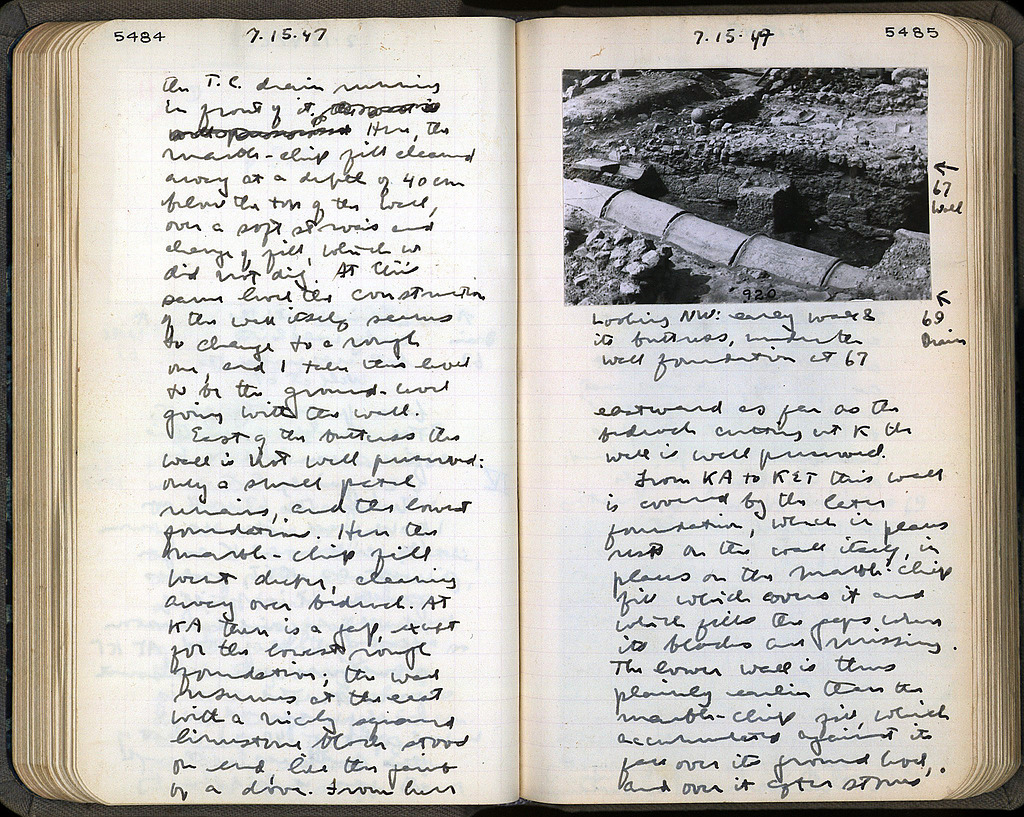 5484
7.15.47
the T.C. drain running
in front of it,
Here, the
marble-chip fill cleaned
away at a depth of 40 cm
below the top of the wall,
over a soft strosis and
change of fill, which we
did not dig. At this
same level the construction
of the wall itself seems
to change to a rough
one, and I take this level
to be the ground-level
going with the wall.
East of the buttress the
wall is not well preserved:
only a small patch
remains, and the lowest
foundation. Here the
marble-chip fill
went deeper, cleaning
away over bedrock. At
KA there is a gap, except
for the lowest rough
foundation; the wall
resumes at the east
with a nicely squared
limestone block stood
on end, like the jamb
of a door. From here
5485
7.15.47
920
← 67 Wall
↖ 69 Drain
Looking NW: early wall &
its buttress, under the
wall foundation at 67
eastward as far as the
bedrock cutting at K the
wall is well preserved.
From KA to KET this wall
is covered by the later
foundation, which in places
rests on the wall itself, in
places on the marble-chip
fill which covers it and
which fills the gaps where
its blocks are missing.
The lower wall is thus
plainly earlier than the
marble-chip fill, which
accumulated against its
face over its ground level,
and over it after stones